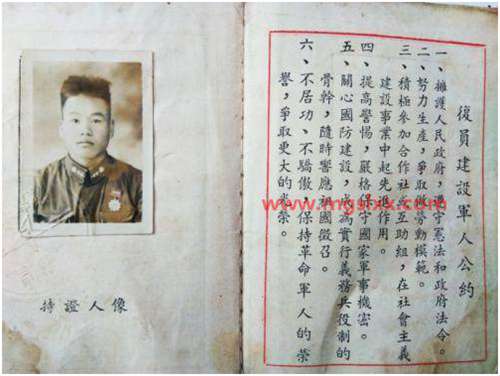 持證人像
復員建設軍人公約
一、擁護人民政府，遵守憲法和政府法令。
二、努力生產，爭取做勞動模範。
三、積極參加合作社、互助組，在社會主義
建設事業中起先進作用。
四、提高警惕，嚴格保守國家軍事機密。
五、關心國防建設，成為實行義務兵役制的
骨幹，隨時響應祖國徵召。
六、不居功、不驕傲，保持革命軍人的榮
譽，爭取更大的光榮。